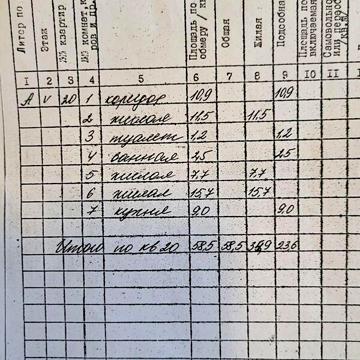 Литер по
Этаж
№ квартир
№ комнат, к
ров и пр.
Площадь по
обмеру / кв
Общая
Жилая
Подсобна
Площадь по
включаемая
Самовольно
или переоб
1 2 3 4 5 6 7 8 9 10 11
А V 20 1 коридор 10,9 10,9
2 жилая 11,5 11,5
3 туалет 1,2 1,2
4 ванная 2,5 2,5
5 жилая 7,7 7,7
6 жилая 15,7 15,7
7 кухня 9,0 9,0
Итого по кв 20 58,5 58,5 34,9 23,6